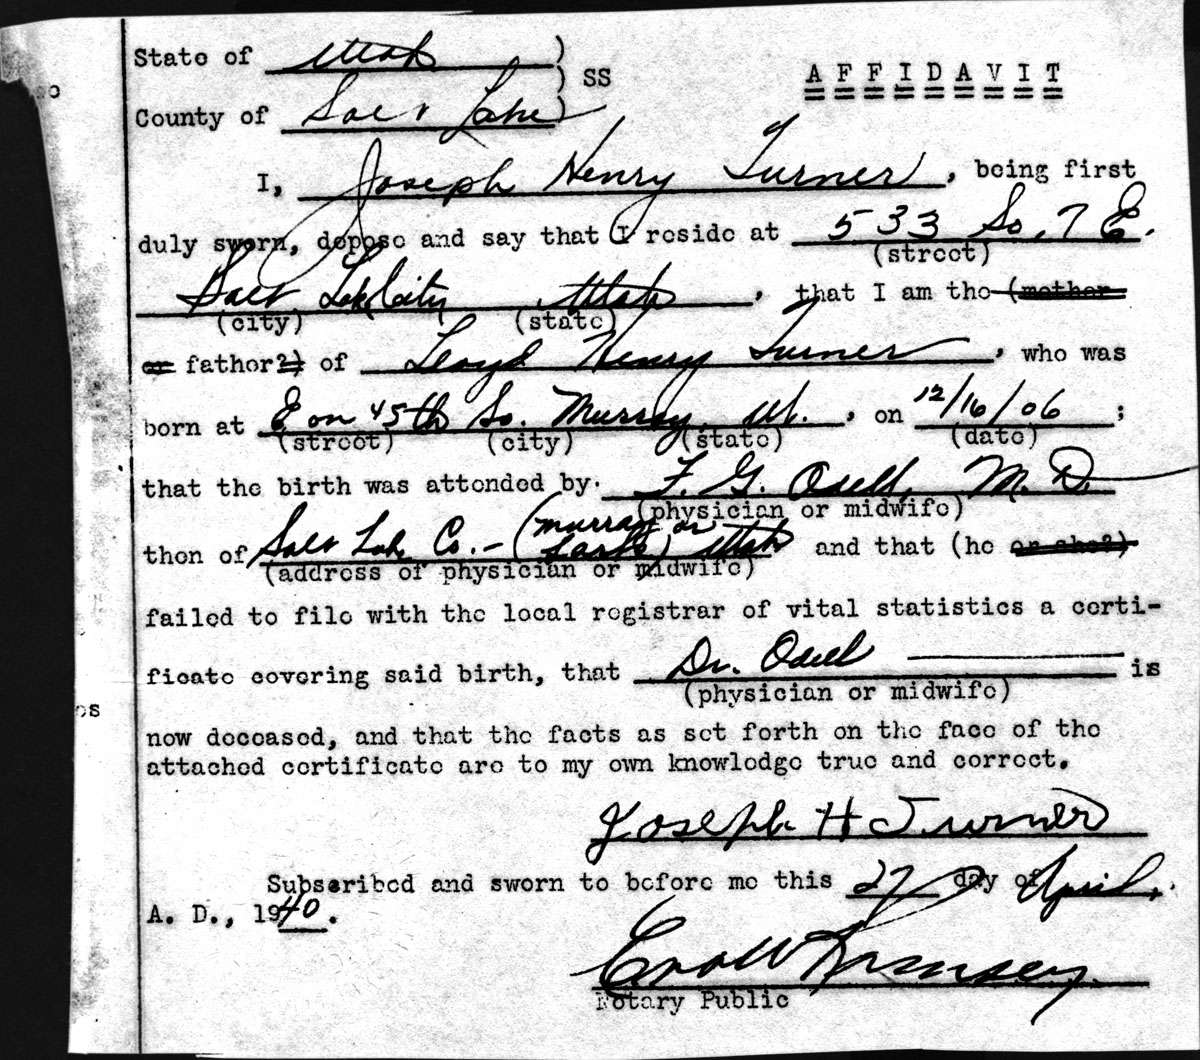 State of Utah ) SS
AFFIDAVIT
County of Salt Lake )
I, Joseph Henry Turner, being first
duly sworn, depose and say that I reside at 533 So. 7 E.
(street)
Salt Lake City Utah, that I am the (mother
(city) (state)
or father?) of Lloyd Henry Turner, who was
born at E on 45th So. Murray, Ut., on 12/16/06;
(street) (city) (state) (date)
that the birth was attended by F. G. Odell, M. D.
(physician or midwife)
(Murray or
then of Salt Lake Co.- ) Utah and that (he or she?)
(address of physician or midwife)
failed to file with the local registrar of vital statistics a certi-
ficate covering said birth, that Dr. Odell is
(physician or midwife)
now deceased, and that the facts as set forth on the face of the
attached certificate are to my own knowledge true and correct.
Joseph H Turner
Subscribed and sworn to before me this 27 day of April,
A. D., 1940.
Notary Public